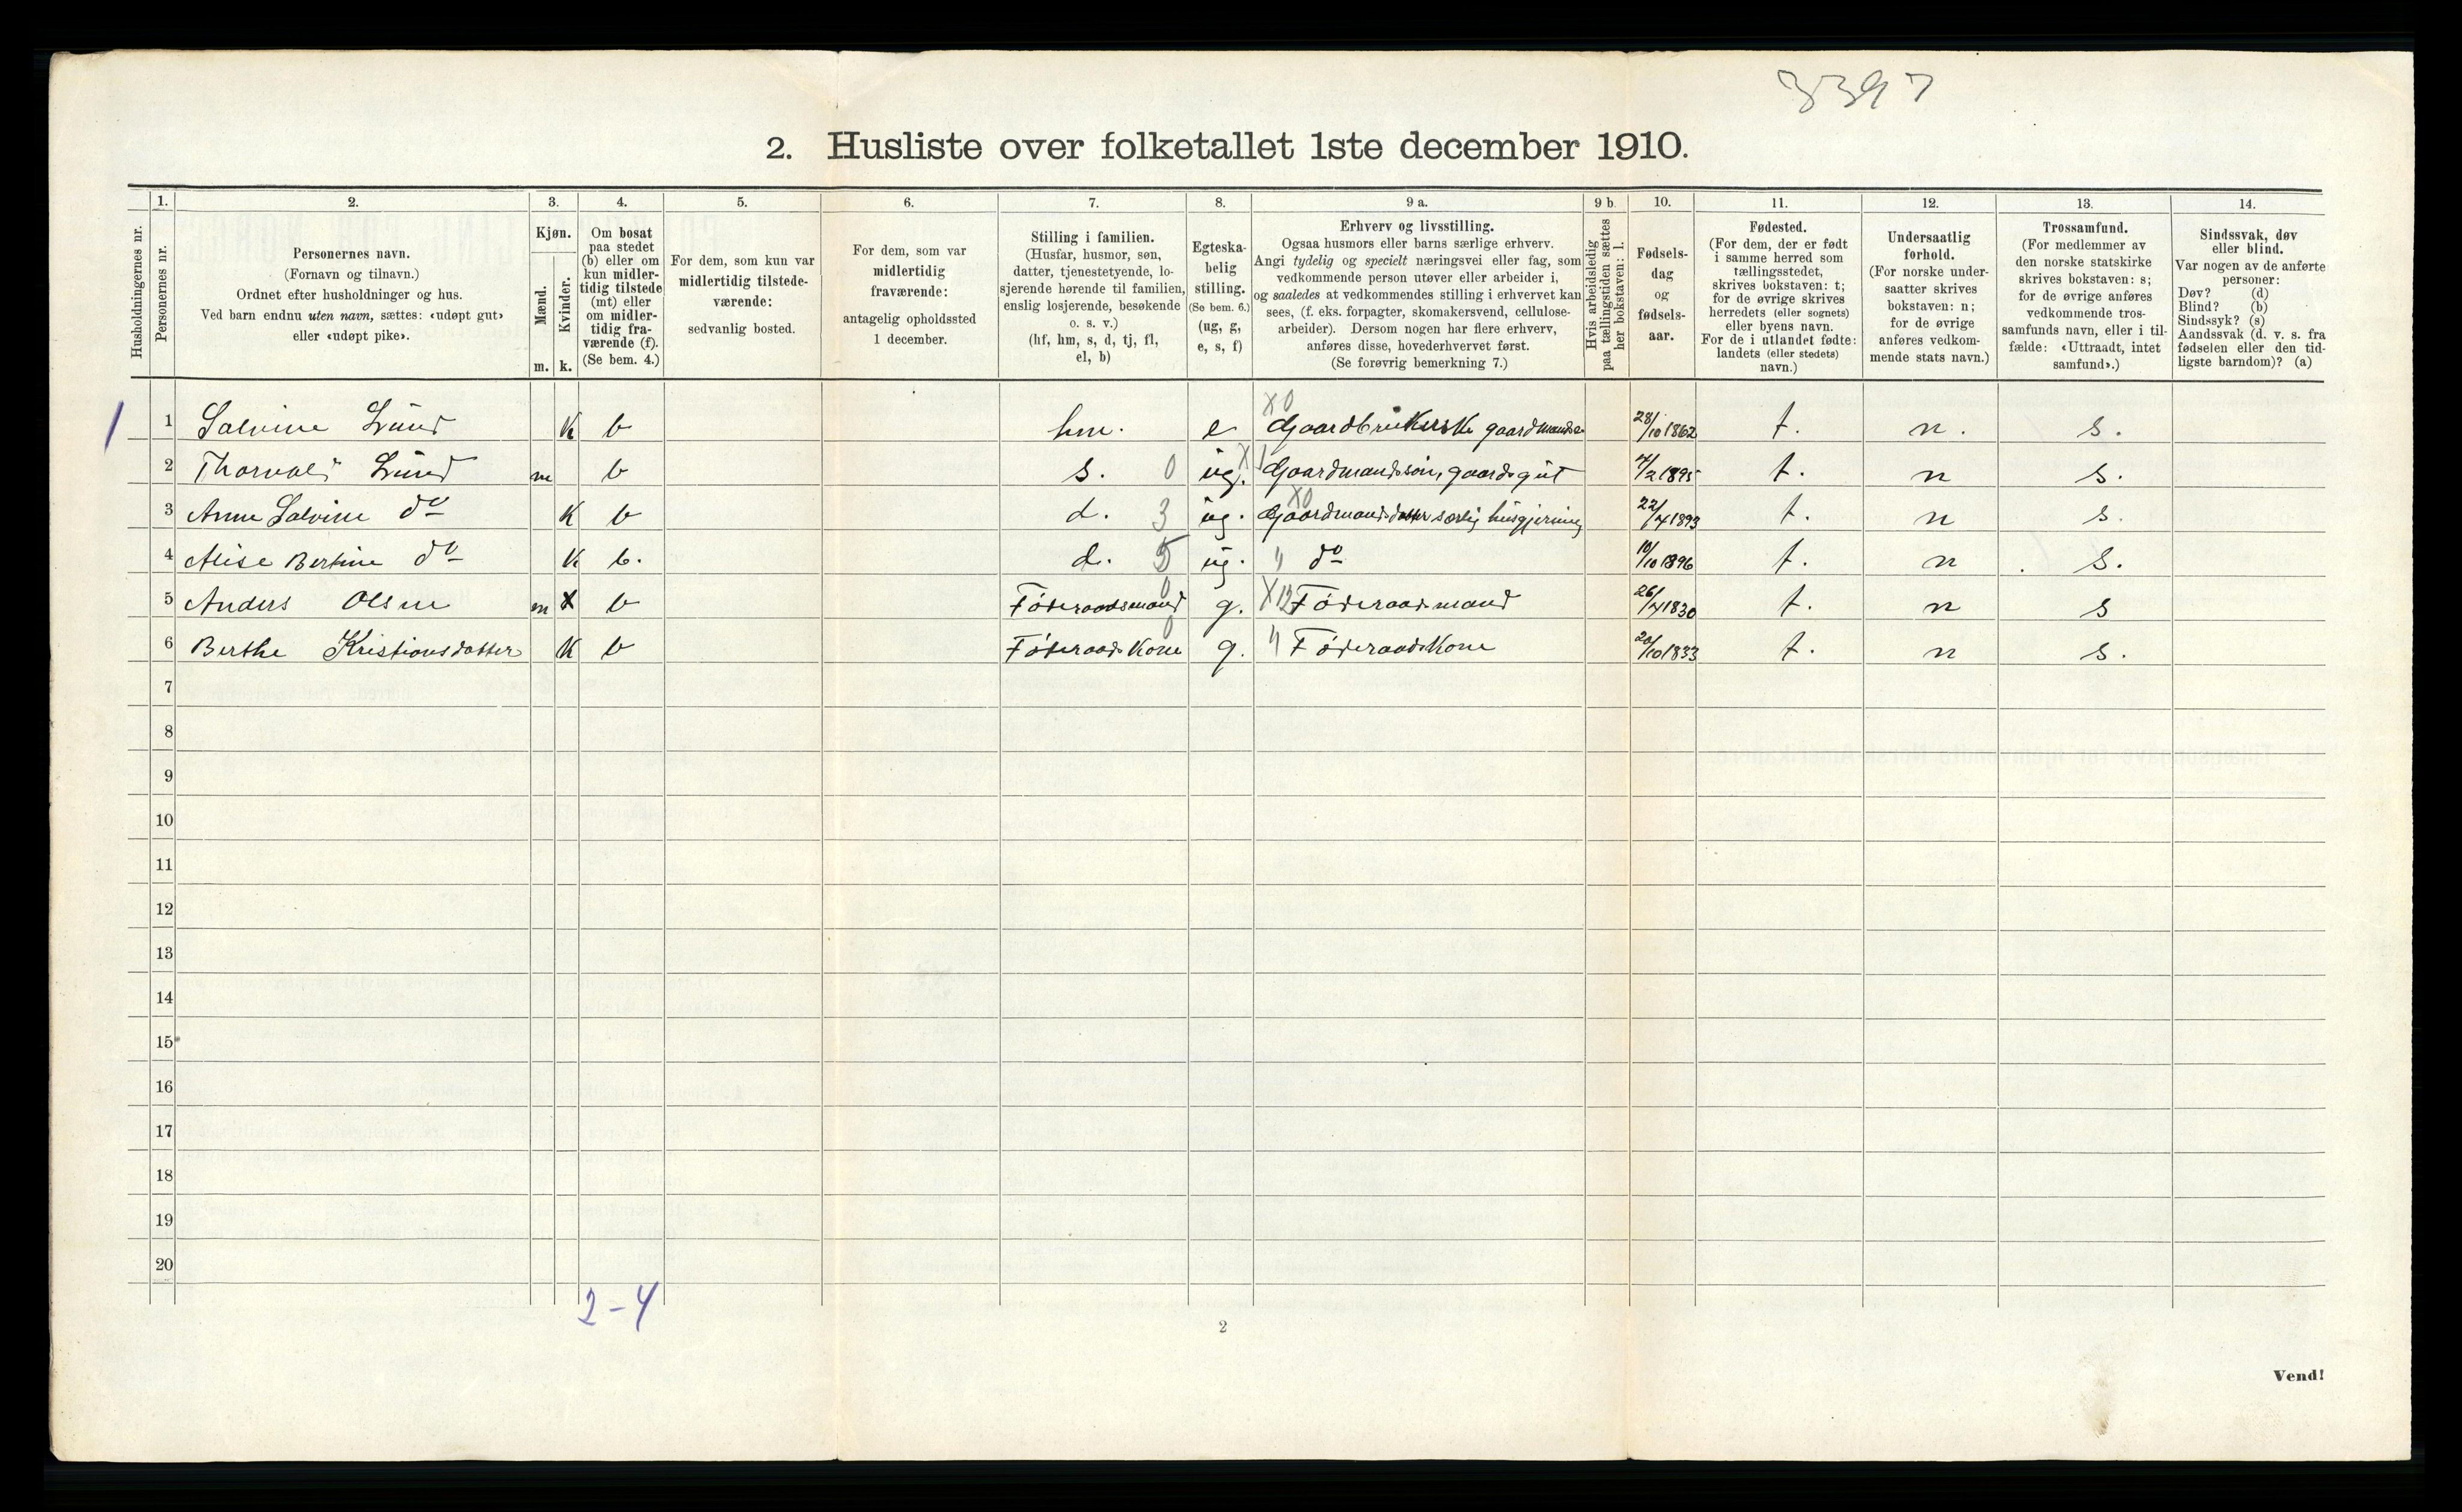 3397
2. Husliste over folketallet 1ste december 1910.
Husholdningernes nr.
1.
Personernes nr.
2.
Personernes navn.
(Fornavn og tilnavn.)
Ordnet efter husholdninger og hus.
Ved barn endnu uten navn, sættes: «udøpt gut»
eller «udøpt pike».
3.
Kjøn.
Mænd.
Kvinder.
m. k.
4.
Om bosat
paa stedet
(b) eller om
kun midler-
tidig tilstede
(mt) eller
om midler-
tidig fra-
værende (f).
(Se bem. 4.)
5.
For dem, som kun var
midlertidig tilstede-
værende:
sedvanlig bosted.
6.
For dem, som var
midlertidig
fraværende:
antagelig opholdssted
1 december.
7.
Stilling i familien.
(Husfar, husmor, søn,
datter, tjenestetyende, lo-
sjerende hørende til familien,
enslig losjerende, besøkende
o. s. v.)
(hf, hm, s, d, tj, fl,
el, b)
8.
Egteska-
belig
stilling.
(Se bem. 6.)
(ug, g,
e, s, f)
9 a.
Erhverv og livsstilling.
Ogsaa husmors eller barns særlige erhverv.
Angi tydelig og specielt næringsvei eller fag, som
vedkommende person utøver eller arbeider i,
og saaledes at vedkommendes stilling i erhvervet kan
sees, (f. eks. forpagter, skomakersvend, cellulose-
arbeider). Dersom nogen har flere erhverv,
anføres disse, hovederhvervet først.
(Se forøvrig bemerkning 7.)
9 b.
Hvis arbeidsledig
paa tællingstiden sættes
her bokstaven: l.
10.
Fødsels-
dag
og
fødsels-
aar.
11.
Fødested.
(For dem, der er født
i samme herred som
tællingsstedet,
skrives bokstaven: t;
for de øvrige skrives
herredets (eller sognets)
eller byens navn.
For de i utlandet fødte:
landets (eller stedets)
navn.)
12.
Undersaatlig
forhold.
(For norske under-
saatter skrives
bokstaven: n;
for de øvrige
anføres vedkom-
mende stats navn.)
13.
Trossamfund.
(For medlemmer av
den norske statskirke
skrives bokstaven: s;
for de øvrige anføres
vedkommende tros-
samfunds navn, eller i til-
fælde: «Uttraadt, intet
samfund».)
14.
Sindssvak, døv
eller blind.
Var nogen av de anførte
personer:
Døv? (d)
Blind? (b)
Sindssyk? (s)
Aandssvak (d. v. s. fra
fødselen eller den tid-
ligste barndom)? (a)
X0
1 1 Salvine Lund K b hm. e Gaardbrukerske 28/10 1862 t. n. s.
2 Thorvald Lund m b s. 0 ug. X1 Gaardmandssøn, gaardsgut 7/2 1895 t. n s.
X0
3 Anne Salvine do K b d. 3 ug. Gaardmandsdatter særlig husgjerning 22/4 1893 t. n s.
4 Alise Bertine do K b. d. 5 ug. " do 10/10 1896 t. n s.
5 Anders Olsen m X b Føderaadsmand 0 g. X12 Føderaadmand 26/4 1830 t. n s
6 Berthe Kristiansdatter K b Føderaadskone 0 g. " Føderaadskone 20/10 1833 t. n s.
7
8
9
10
11
12
13
14
15
16
17
18
19
20
2-4
2
Vend!